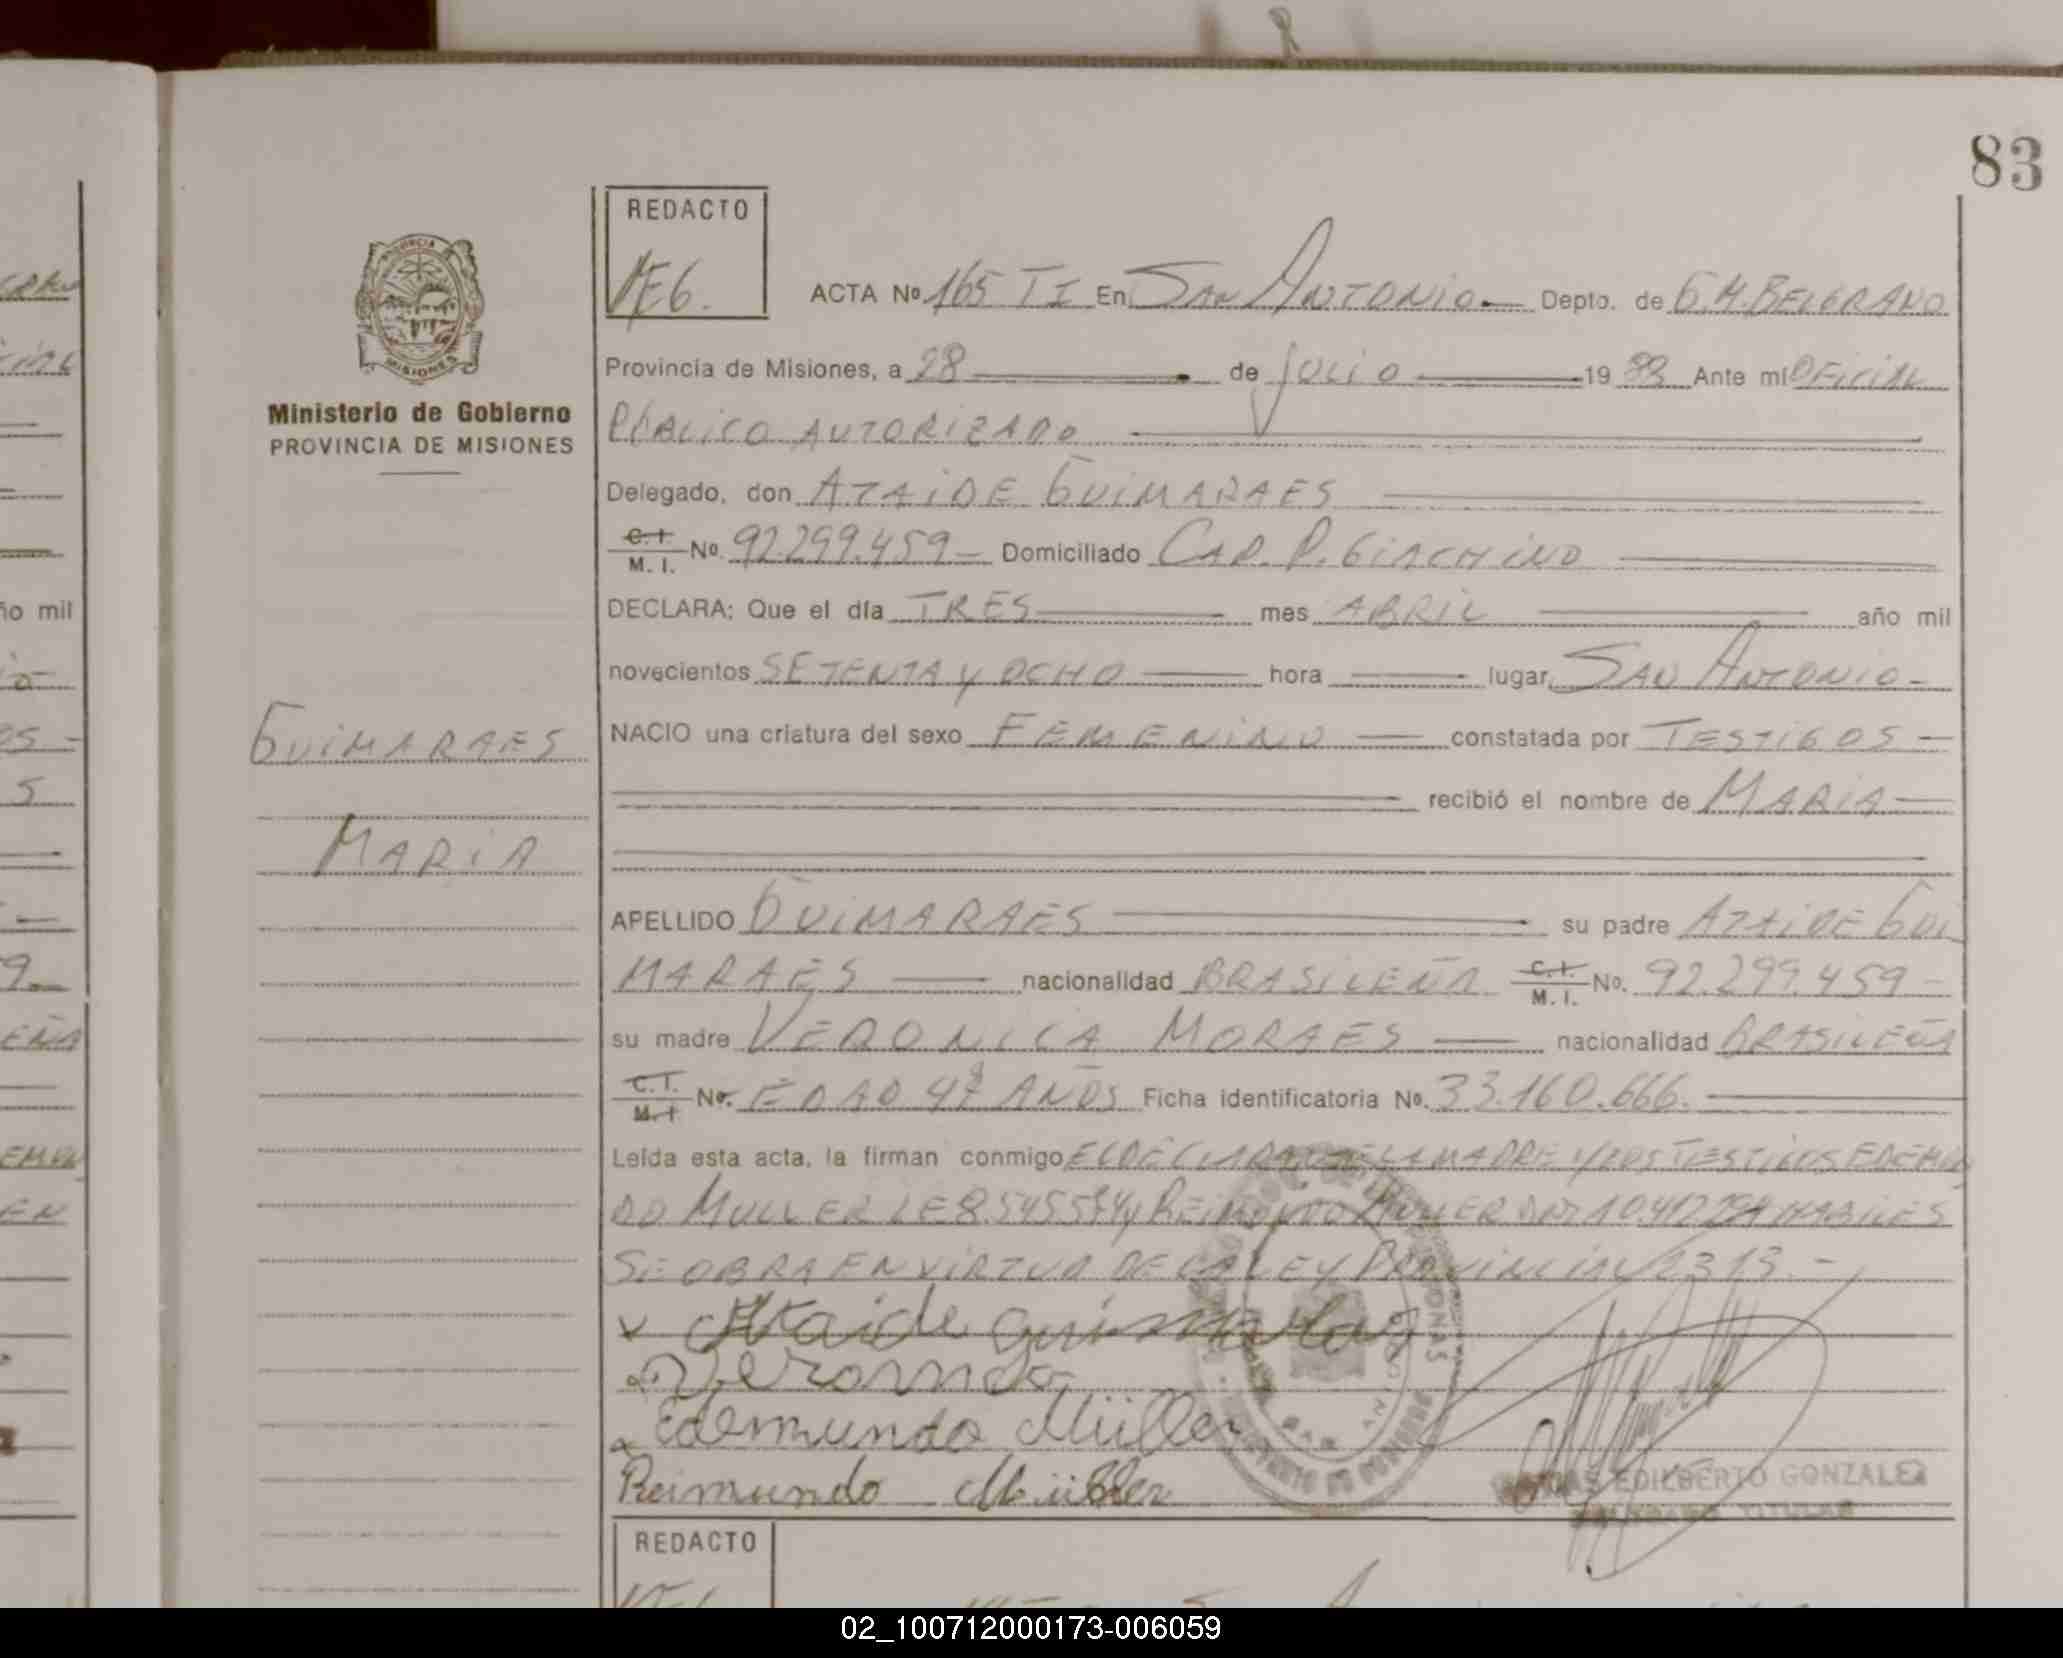 83
REDACTO
ACTA No. 165 TI En SAN ANTONIO Depto. de G.M. BELGRANO
Provincia de Misiones, a 28 de JULIO 19 Ante mí OFICIAL
PÚBLICO AUTORIZADO
Delegado, don ATAIDE GUIMARAES
C.I. M.I. No. 92.299.459 Domiciliado CAP. P. GIACHINO
DECLARA: Que el día TRES mes ABRIL año mil
novecientos SETENTA Y OCHO hora lugar SAN ANTONIO
NACIO una criatura del sexo FEMENINO constatada por TESTIGOS
recibió el nombre de MARIA
APELLIDO GUIMARAES su padre ATAIDE GUI
MARAES nacionalidad BRASILEÑA C.I. M.I. No. 92.299.459
su madre VERONICA MORAES nacionalidad BRASILEÑA
C.I. M.I. No. EDAD AÑOS Ficha identificatoria No. 33.160.666.
Leída esta acta, la firman conmigo EL DECLARANTE LA MADRE Y LOS TESTIGOS EDEMUN
DO MULLER LE 8.545.584 y REIMUNDO MULLER DNI HABILES
SE OBRA EN VIRTUD DE LA LEY PROVINCIAL 2313.-
Ataide Guimaraes
Edemundo Müller
Reimundo Müller
EDILBERTO GONZALEZ
DELEGADO TITULAR
Ministerio de Gobierno
PROVINCIA DE MISIONES
GUIMARAES
MARIA
REDACTO
02_100712000173-006059